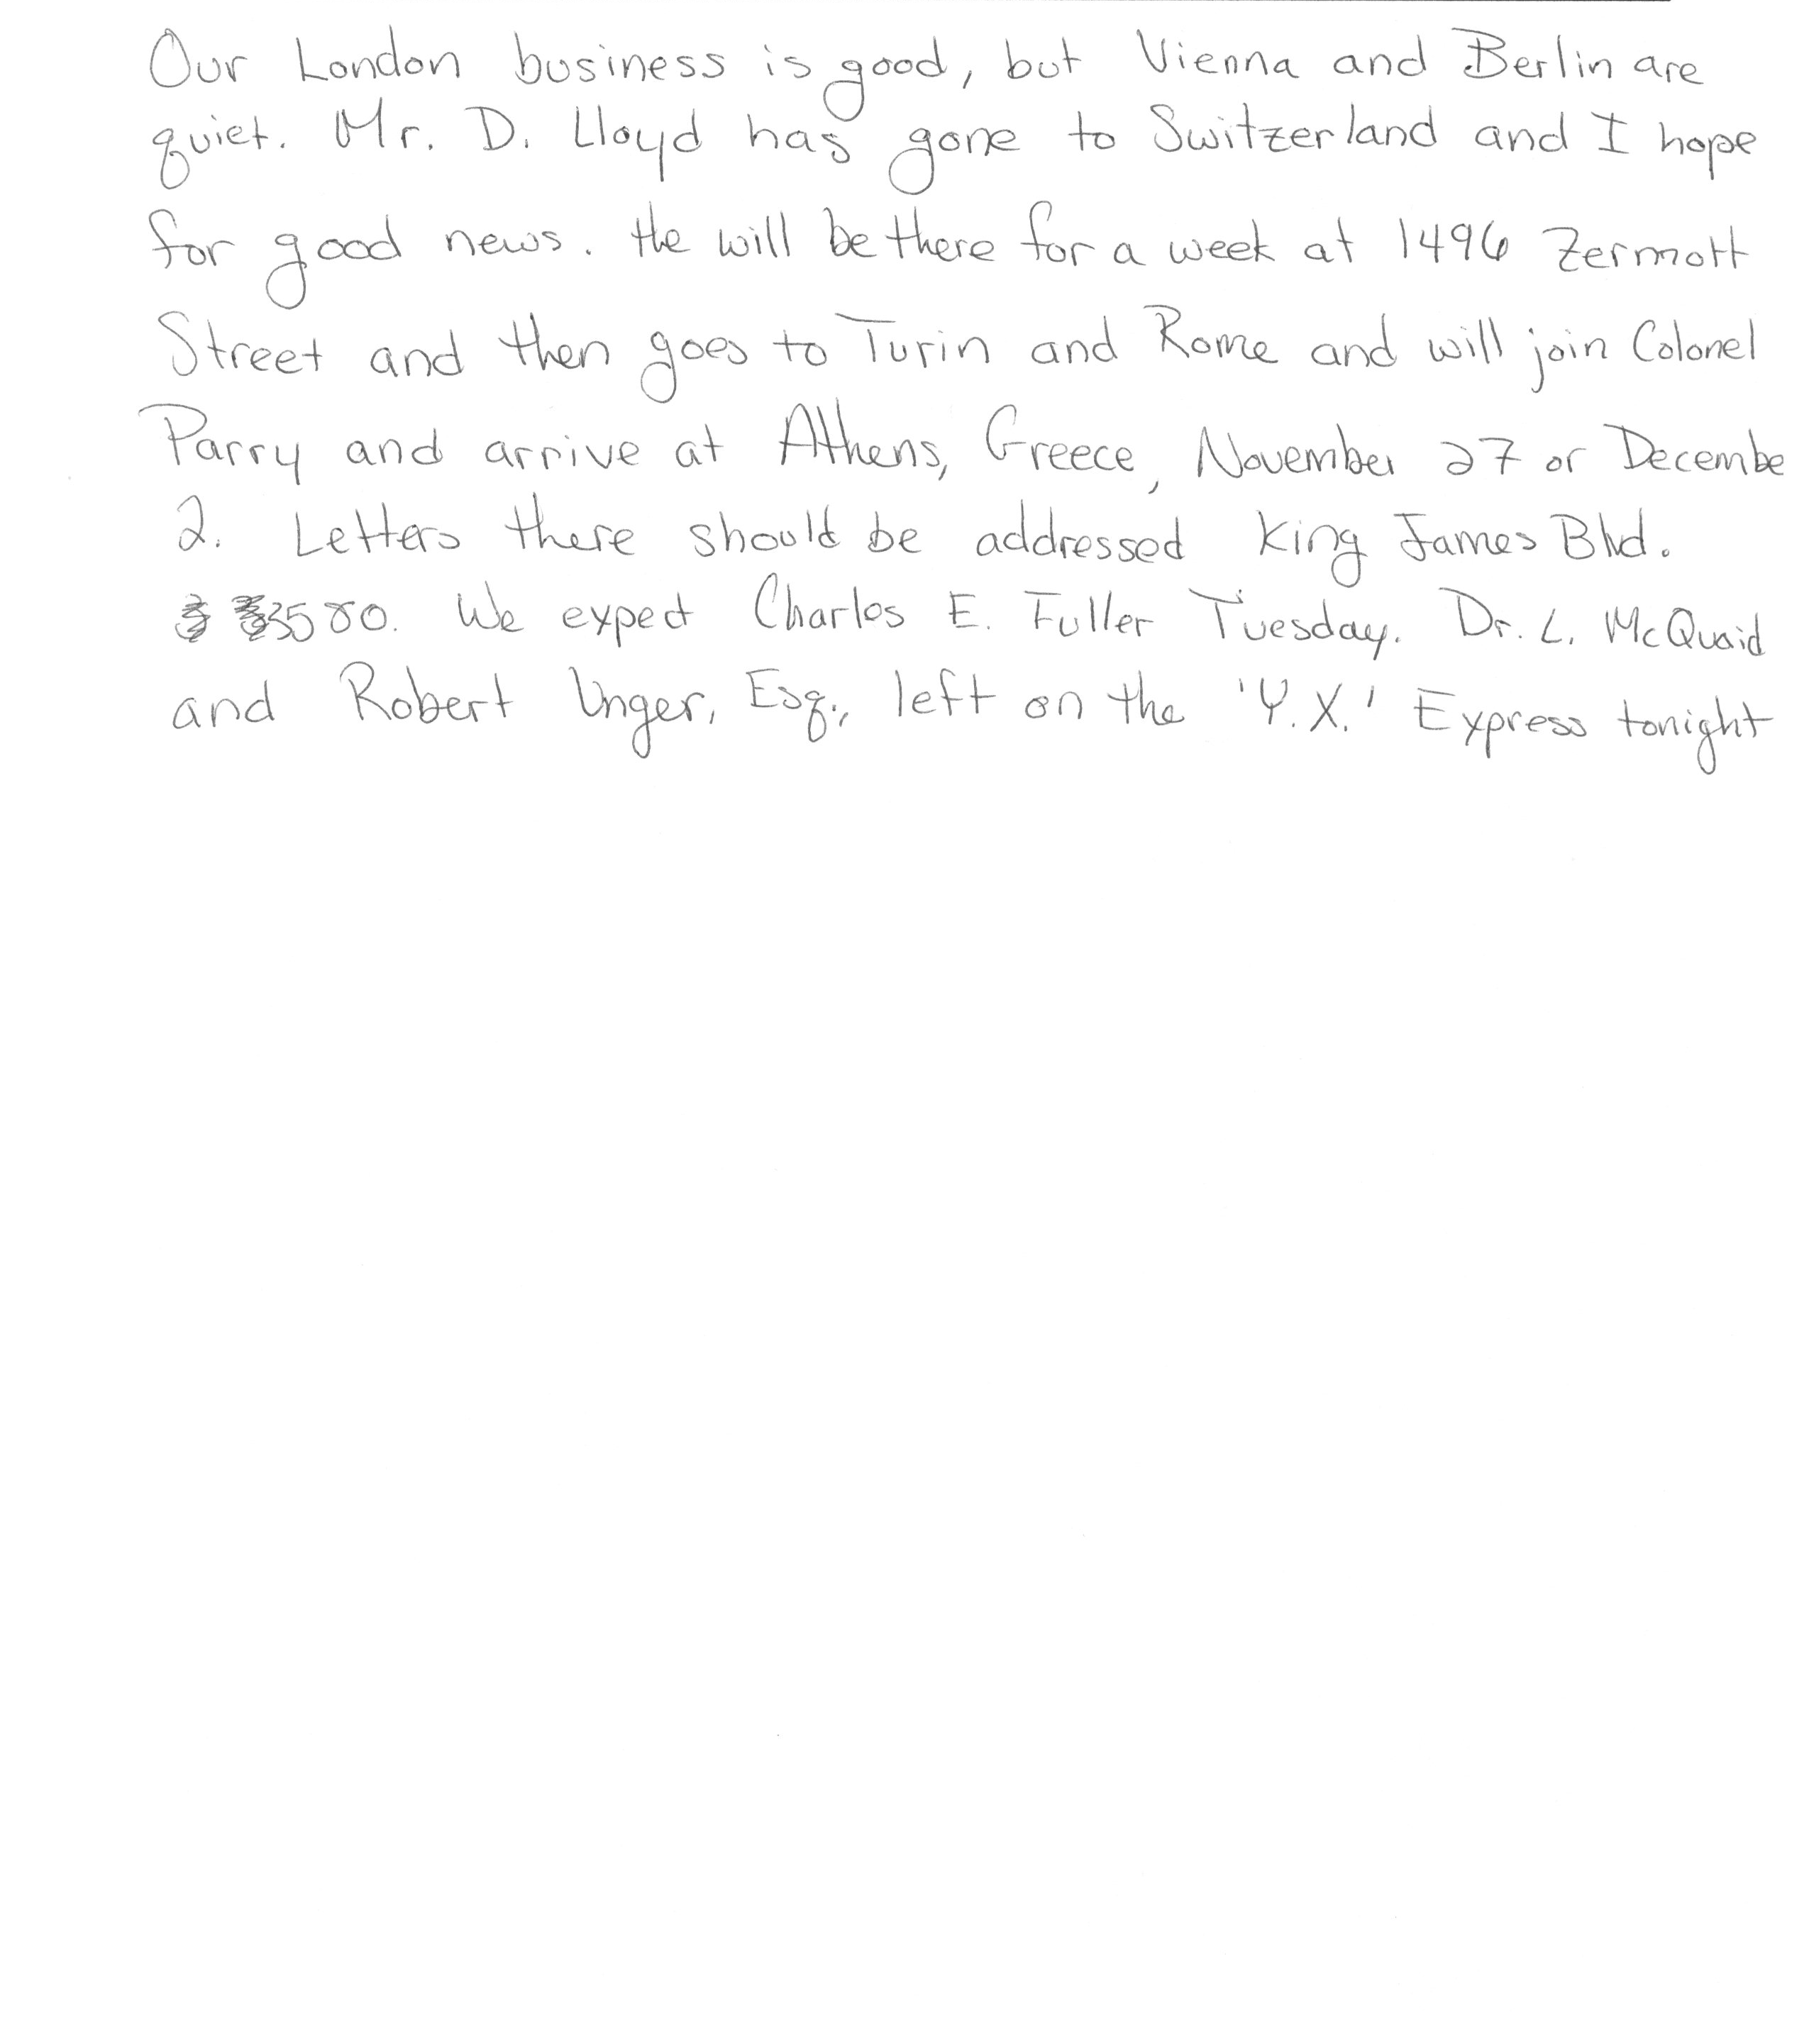 Our London business is good, but Vienna and Berlin are
quiet. Mr. D. Lloyd has gone to Switzerland and I hope
for good news. He will be there for a week at 1496 Zermott
Street and then goes to Turin and Rome and will join Colonel
Parry and arrive at Athens, Greece, November 27 or Decembe
2. Letters there should be addressed King James Blvd.
3580. We expect Charles E. Fuller Tuesday. Dr. L. McQuaid
and Robert Unger, Esq., left on the 'Y.X.' Express tonight